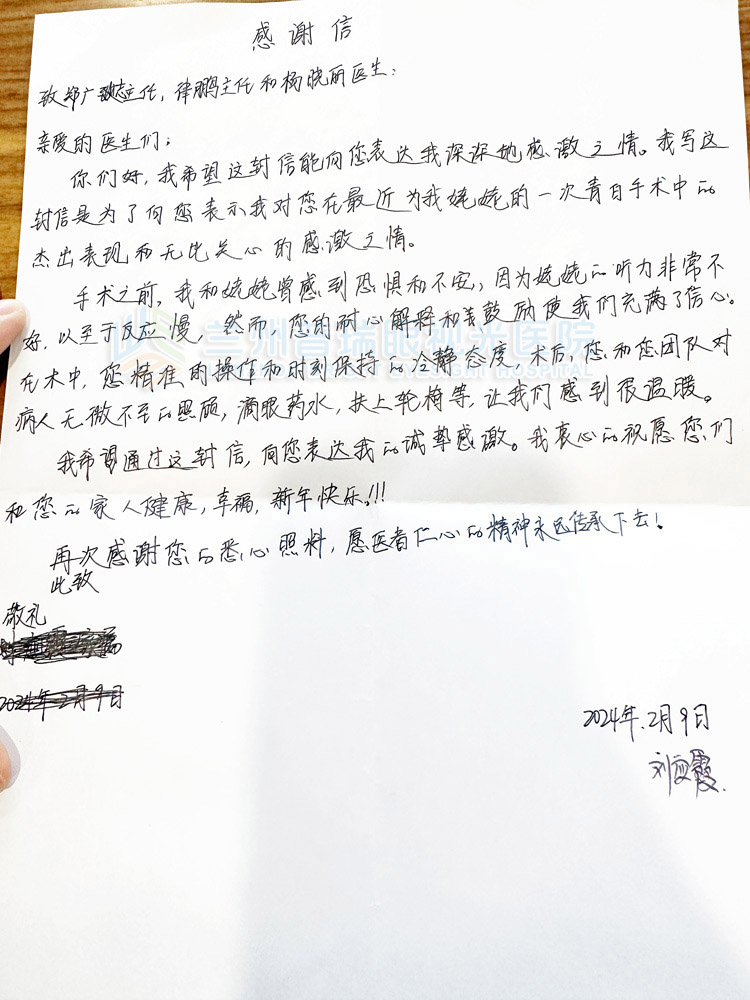 感谢信
致郑广志主任，律鹏主任和杨晓丽医生：
亲爱的医生们；
你们好，我希望这封信能向您表达我深深地感激之情。我写这
封信是为了向您表示我对您在最近为我姥姥的一次青白手术中的
杰出表现和无比关心的感激之情。
手术之前，我和姥姥曾感到恐惧和不安，因为姥姥的听力非常不
好，以至于反应慢，然而，您的耐心解释和鼓励使我们充满了信心。
在术中，您精准的操作和时刻保持的冷静态度。术后，您和您团队对
病人无微不至的照顾，滴眼药水，扶上轮椅等，让我们感到很温暖。
兰州普瑞眼视光医院
我希望通过这封信，向您表达我的诚挚感激。我衷心的祝愿您们
和您的家人健康，幸福，新年快乐！！！
再次感谢您的悉心照料，愿医者仁心的精神永远传承下去！
此致
敬礼
2024年2月9日
2024年.2月9日
刘应霞.